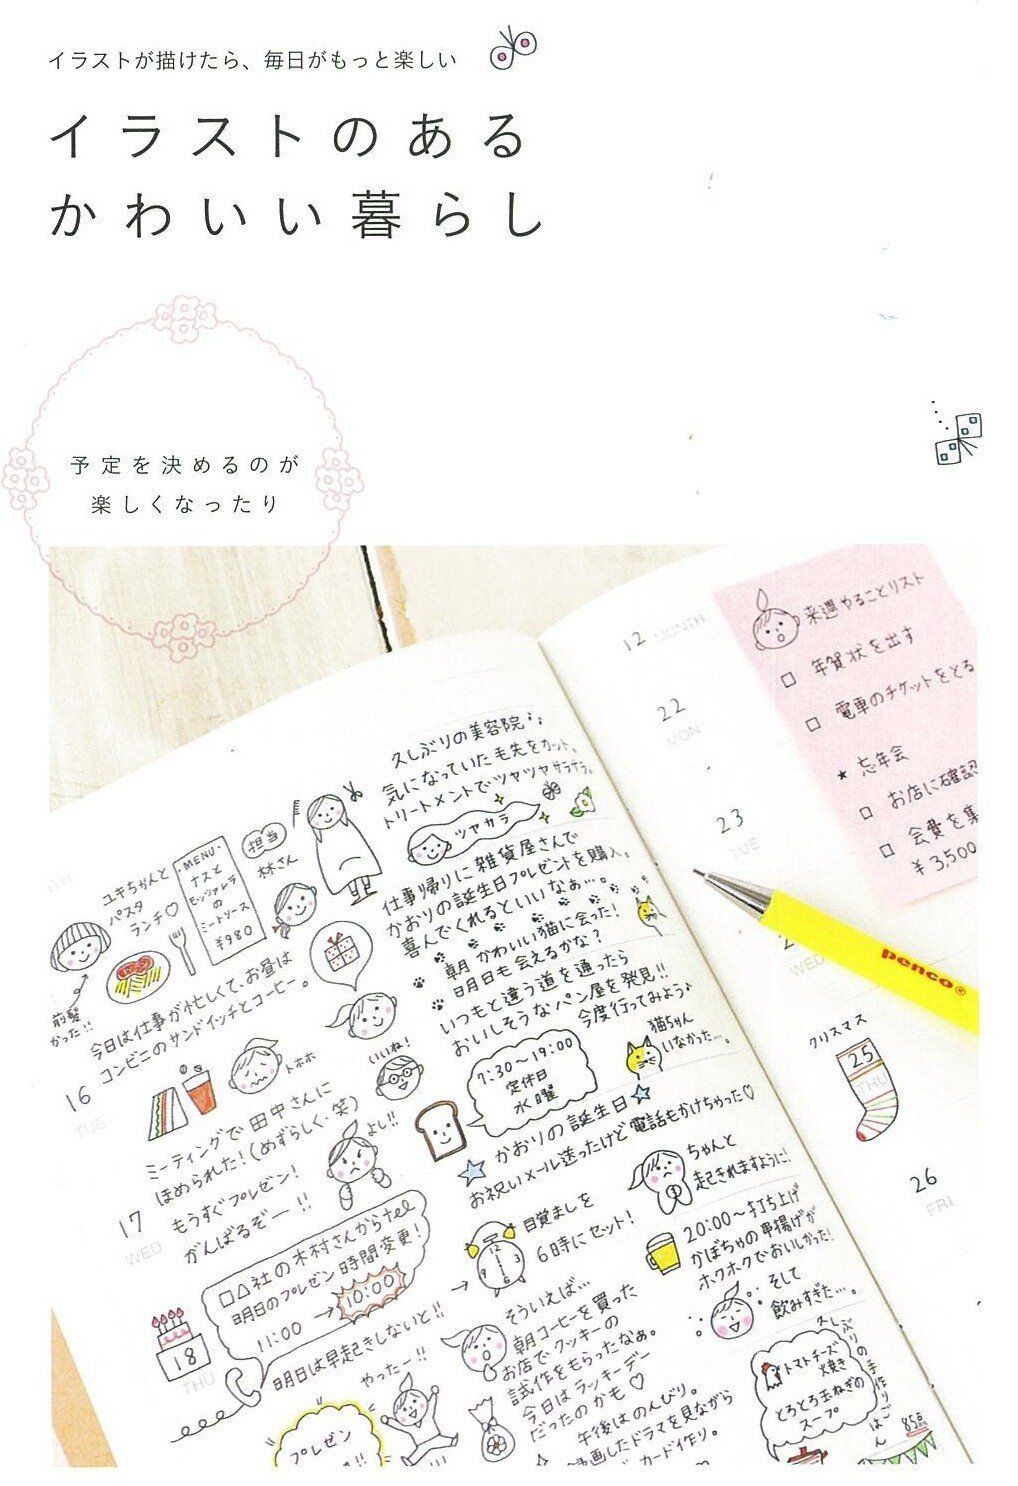 イラストが描けたら、毎日がもっと楽しい
イラストのある
かわいい暮らし
予定を決めるのが
楽しくなったり
12 MONTH
22
MON
23
TUE
WED
クリスマス
25
THU
26
FRI
来週やることリスト
□ 年賀状を出す
□ 電車のチケットをとる
★ 忘年会
□ お店に確認
□ 会費を集
¥3,500
penco®
ユキちゃんと
パスタ
ランチ♡
・MENU・
ナスと
モッツァレラ
の
ミートソース
¥980
担当
林さん
前髪
かった!!
今日は仕事が忙しくて、お昼は
コンビニのサンドイッチとコーヒー。
トホホ
いいね!
16
TUE
ミーティングで田中さんに
ほめられた!(めずらしく・笑)
もうすぐプレゼン!
がんばるぞー!!
よし!!
17
WED
□△社の木村さんからtel
明日のプレゼン時間変更!
11:00 → 10:00
明日は早起きしないと!!
18
THU
やったー!!
プレゼン
久しぶりの美容院
気になっていた毛先をカット。
トリートメントでツヤツヤサラサラ。
ツヤサラ
仕事帰りに雑貨屋さんで
かおりの誕生日プレゼントを購入。
喜んでくれるといいなぁ…。
朝かわいい猫に会った!
明日も会えるかな?
いつもと違う道を通ったら
おいしそうなパン屋を発見!!
今度行ってみよう♪
7:30~19:00
定休日
水曜
猫ちゃん
いなかった…。
かおりの誕生日☆
お祝いメール送ったけど電話もかけちゃった♡
ちゃんと
起きれますように!
目覚ましを
6時にセット!
20:00~打ち上げ
かぼちゃの串揚げが
ホクホクでおいしかった!
そして
飲みすぎた…。
そういえば…
朝コーヒーを買った
お店でクッキーの
試作をもらったなぁ。
今日はラッキーデー
だったのかも♡
午後はのんびり。
録画したドラマを見ながら
カード作り。
久しぶりの手作りごはん
トマトチーズ
焼き
とろとろ玉ねぎの
スープ
85点